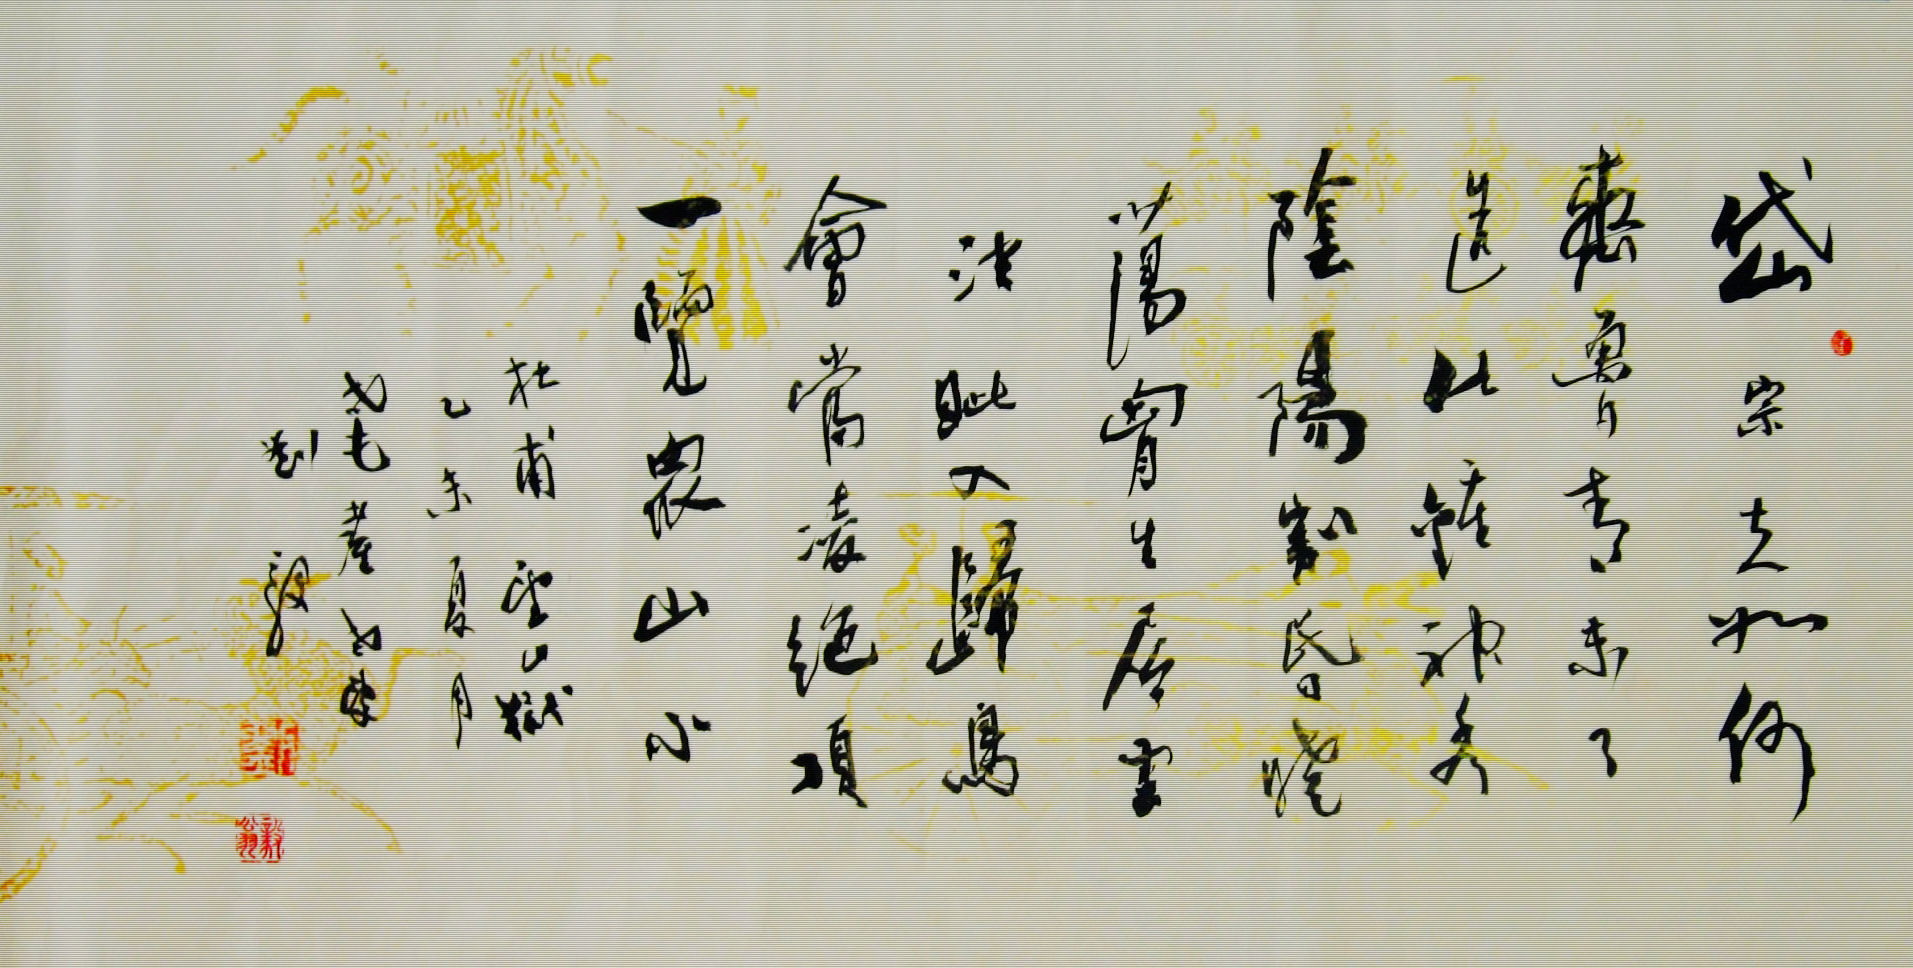 岱宗夫如何
齊魯青未了
造化鍾神秀
陰陽割昏曉
蕩胷生層雲
決眦入歸鳥
會當凌絕頂
一覽眾山小
杜甫望嶽
乙未夏月
劉毅